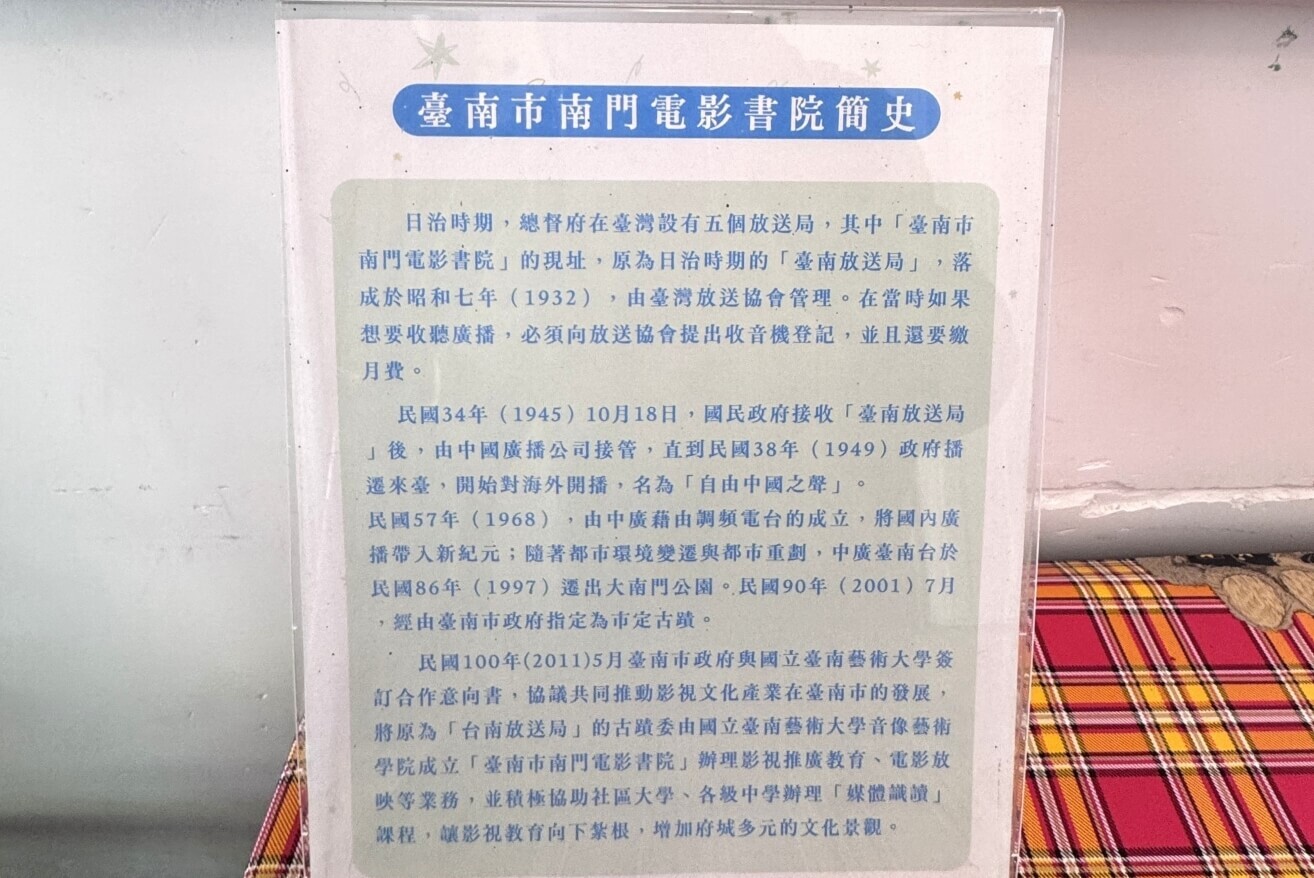 臺南市南門電影書院簡史
日治時期，總督府在臺灣設有五個放送局，其中「臺南市
南門電影書院」的現址，原為日治時期的「臺南放送局」，落
成於昭和七年（1932），由臺灣放送協會管理。在當時如果
想要收聽廣播，必須向放送協會提出收音機登記，並且還要繳
月費。
民國34年（1945）10月18日，國民政府接收「臺南放送局
」後，由中國廣播公司接管，直到民國38年（1949）政府播
遷來臺，開始對海外開播，名為「自由中國之聲」。
民國57年（1968），由中廣藉由調頻電台的成立，將國內廣
播帶入新紀元；隨著都市環境變遷與都市重劃，中廣臺南台於
民國86年（1997）遷出大南門公園。民國90年（2001）7月
，經由臺南市政府指定為市定古蹟。
民國100年(2011)5月臺南市政府與國立臺南藝術大學簽
訂合作意向書，協議共同推動影視文化產業在臺南市的發展，
將原為「台南放送局」的古蹟委由國立臺南藝術大學音像藝術
學院成立「臺南市南門電影書院」辦理影視推廣教育、電影放
映等業務，並積極協助社區大學、各級中學辦理「媒體識讀」
課程，讓影視教育向下紮根，增加府城多元的文化景觀。